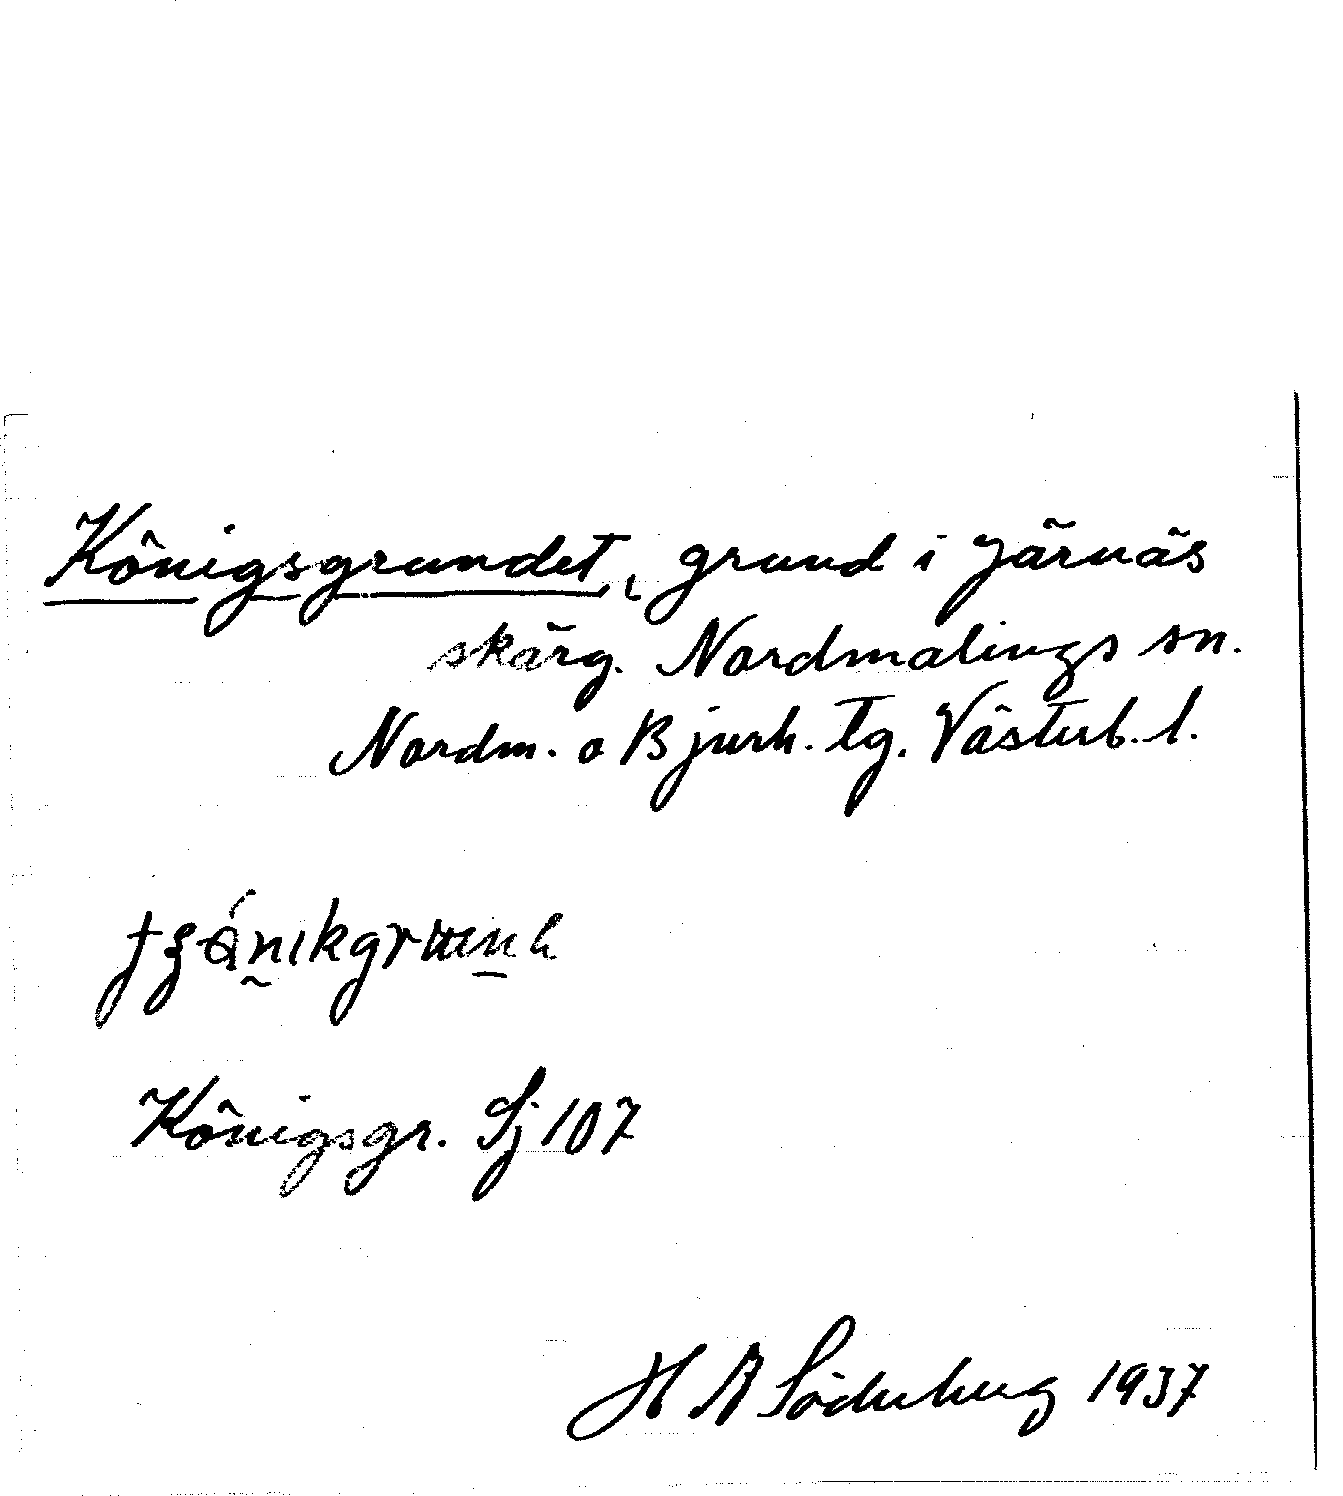 Königsgrundet, grund i Järnäs
skärg. Nordmalings sn.
Nordm. o Bjurh. tg. Västerb. l.
Königsgr. Sj 107
H A Söderberg 1937